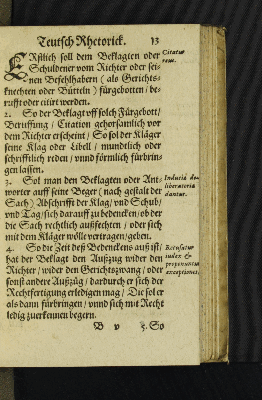 Teutsch Rhetorick. 13
ERstlich soll dem Beklagten oder
Schuldener vom Richter oder sei-
nen Befehlhabern (als Gerichts-
knechten oder Bütteln) fürgebotten/ be-
rufft oder citirt werden.
2. So der Beklagt vff solch Fürgebott/
Beruffung/ Citation gehorsamlich vor
dem Richter erscheint/ So sol der Kläger
seine Klag oder Libell/ mundtlich oder
schrifftlich reden/ vnnd förmlich fürbrin-
gen lassen.
3. Sol man den Beklagten oder Ant-
worter auff seine Beger (nach gestalt der
Sach) Abschrifft der Klag/ vnd Schub/
vnd Tag/ sich darauff zu bedencken/ ob der
die Sach rechtlich außfechten/ oder sich
mit dem Kläger wölle vertragen/ geben.
4. So die Zeit deß Bedenckens auß ist/
hat der Beklagt den Außzug wider den
Richter/ wider den Gerichtszwang/ oder
sonst andere Außzüg/ dardurch er sich der
Rechtfertigung erledigen mag/ Die sol er
als dann fürbringen/ vnnd sich mit Recht
ledig zuerkennen begern.
B v 5. So
Citatur
reus.
Induciæ de-
liberatoriæ
dantur.
Recusatur
iudex &
proponuntur
exceptiones.